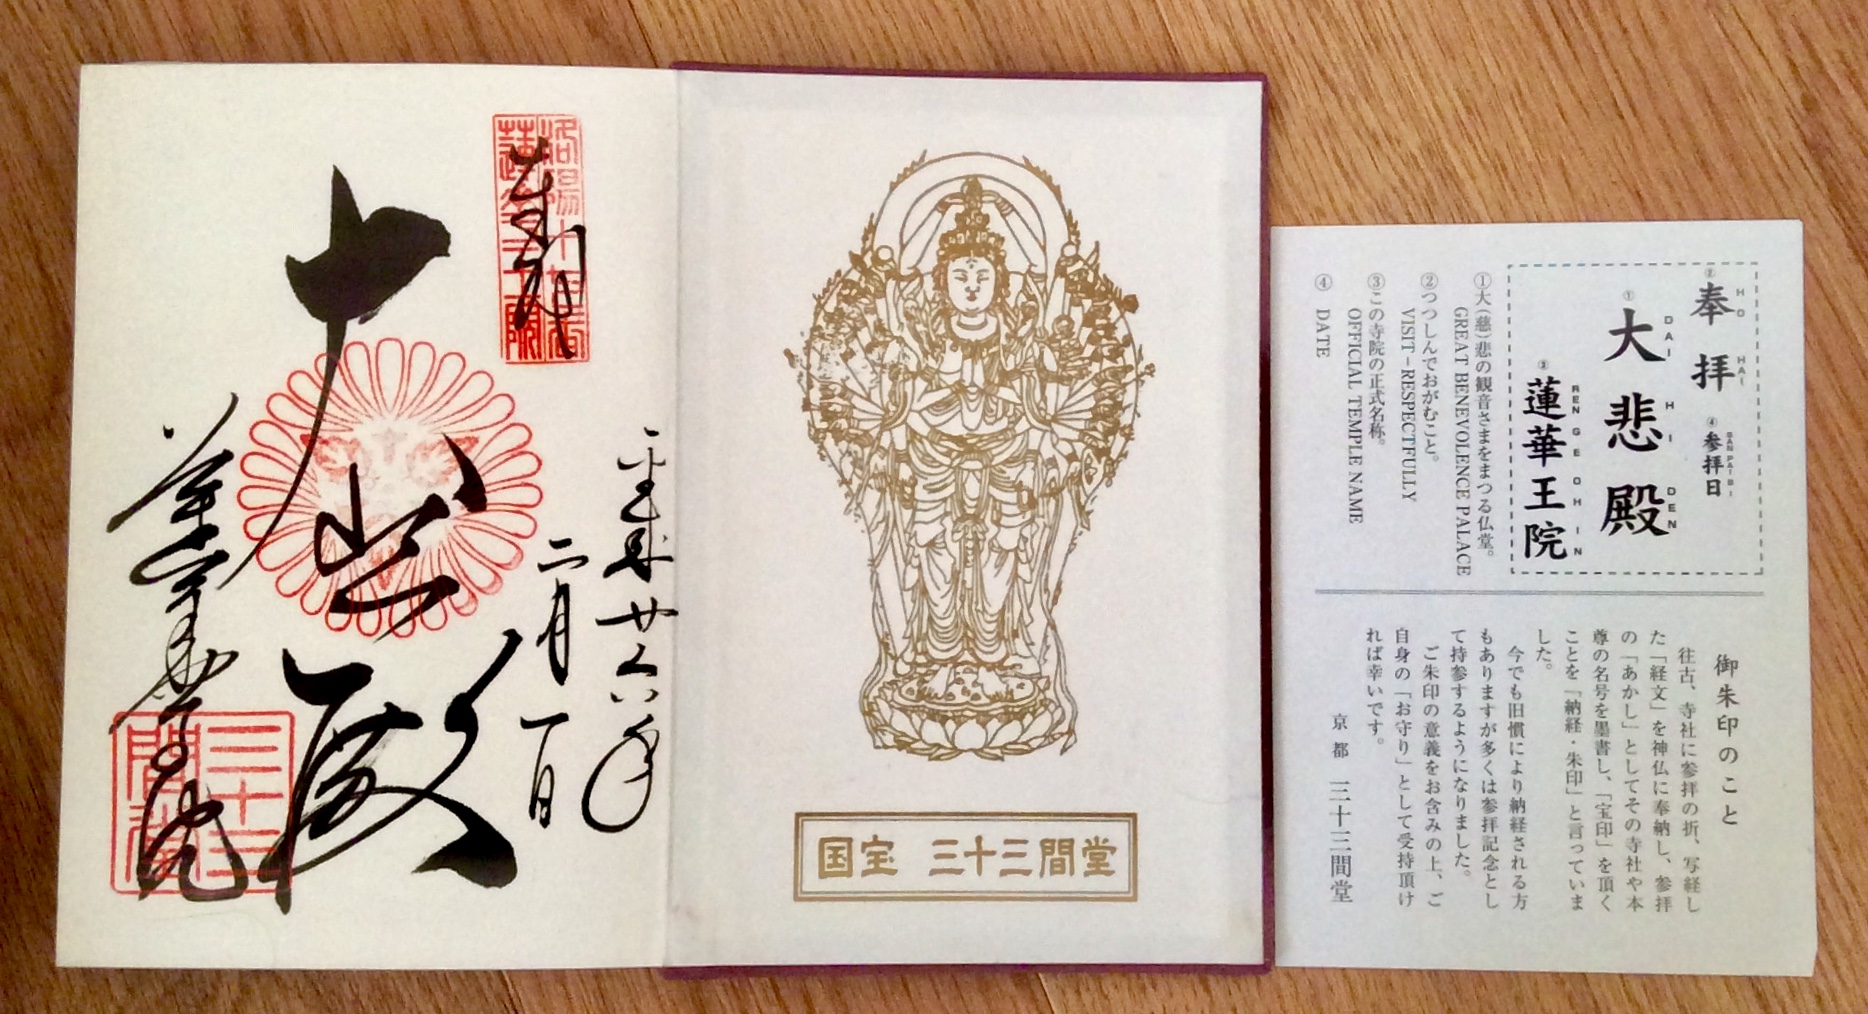 奉拝
洛陽十七番
蓮華王院
平成廿六年
二月一日
大悲殿
蓮華王院
三十三
間堂
国宝 三十三間堂
②奉拝 ④参拝日
HO HAI SAN PAI BI
①大悲殿
DAI HI DEN
③蓮華王院
REN GE OH IN
①大(慈)悲の観音さまをまつる仏堂。
GREAT BENEVOLENCE PALACE
②つつしんでおがむこと。
VISIT－RESPECTFULLY
③この寺院の正式名称。
OFFICIAL TEMPLE NAME
④ DATE
御朱印のこと
往古、寺社に参拝の折、写経し
た「経文」を神仏に奉納し、参拝
の「あかし」としてその寺社や本
尊の名号を墨書し、「宝印」を頂く
ことを「納経・朱印」と言っていま
した。
今でも旧慣により納経される方
もありますが多くは参拝記念とし
て持参するようになりました。
ご朱印の意義をお含みの上、ご
自身の「お守り」として受持頂け
れば幸いです。
京都 三十三間堂